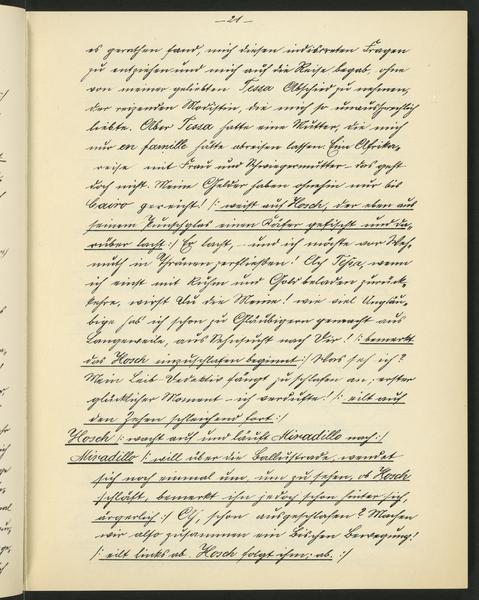 — 21 —
es gerathen fand, mich diesen indiskreten Fragen
zu entziehen und mich auf die Reise begab, ohne
von meiner geliebten Tessa Abschied zu nehmen,
der reizenden Modistin, die mich so unaussprechlich
liebte. Aber Tessa hatte eine Mutter, die mich
nur en famille hätte abreisen lassen. Eine Afrika-
reise mit Frau und Schwiegermutter – das geht
doch nicht. Meine Gelder haben ohnehin nur bis
Cairo gereicht! /: weist auf Hosch, der eben aus
seinem Punschglas einen Käfer gefischt und da-
rüber lacht :/ Er lacht, – und ich möchte vor Weh-
muth in Thränen zerfließen! Oh Tessa, wenn
ich einst mit Ruhm und Gold beladen zurück-
kehre, wirst Du die Meine! wie viel Ungläu-
bige hab ich schon zu Gläubigern gemacht aus
Langeweile, aus Sehnsucht nach Dir! /: bemerkt
das Hosch einzuschlafen beginnt :/ Was seh ich?
Mein Leib Redaktör fängt zu schlafen an; erster
glücklicher Moment – ich verdufte! /: eilt auf
den Zehen schleichend fort :/
Hosch /: wacht auf und läuft Miradillo nach :/
Miradillo /: will über die Ballustrade, wendet
sich noch einmal um, um zu sehen, ob Hosch
schläft, bemerkt ihn jedoch schon hinter sich,
ärgerlich :/ Oh, schon ausgeschlafen? Machen
wir also zusammen ein Bischen Bewegung!
/: eilt links ab. Hosch folgt ihm; ab. :/